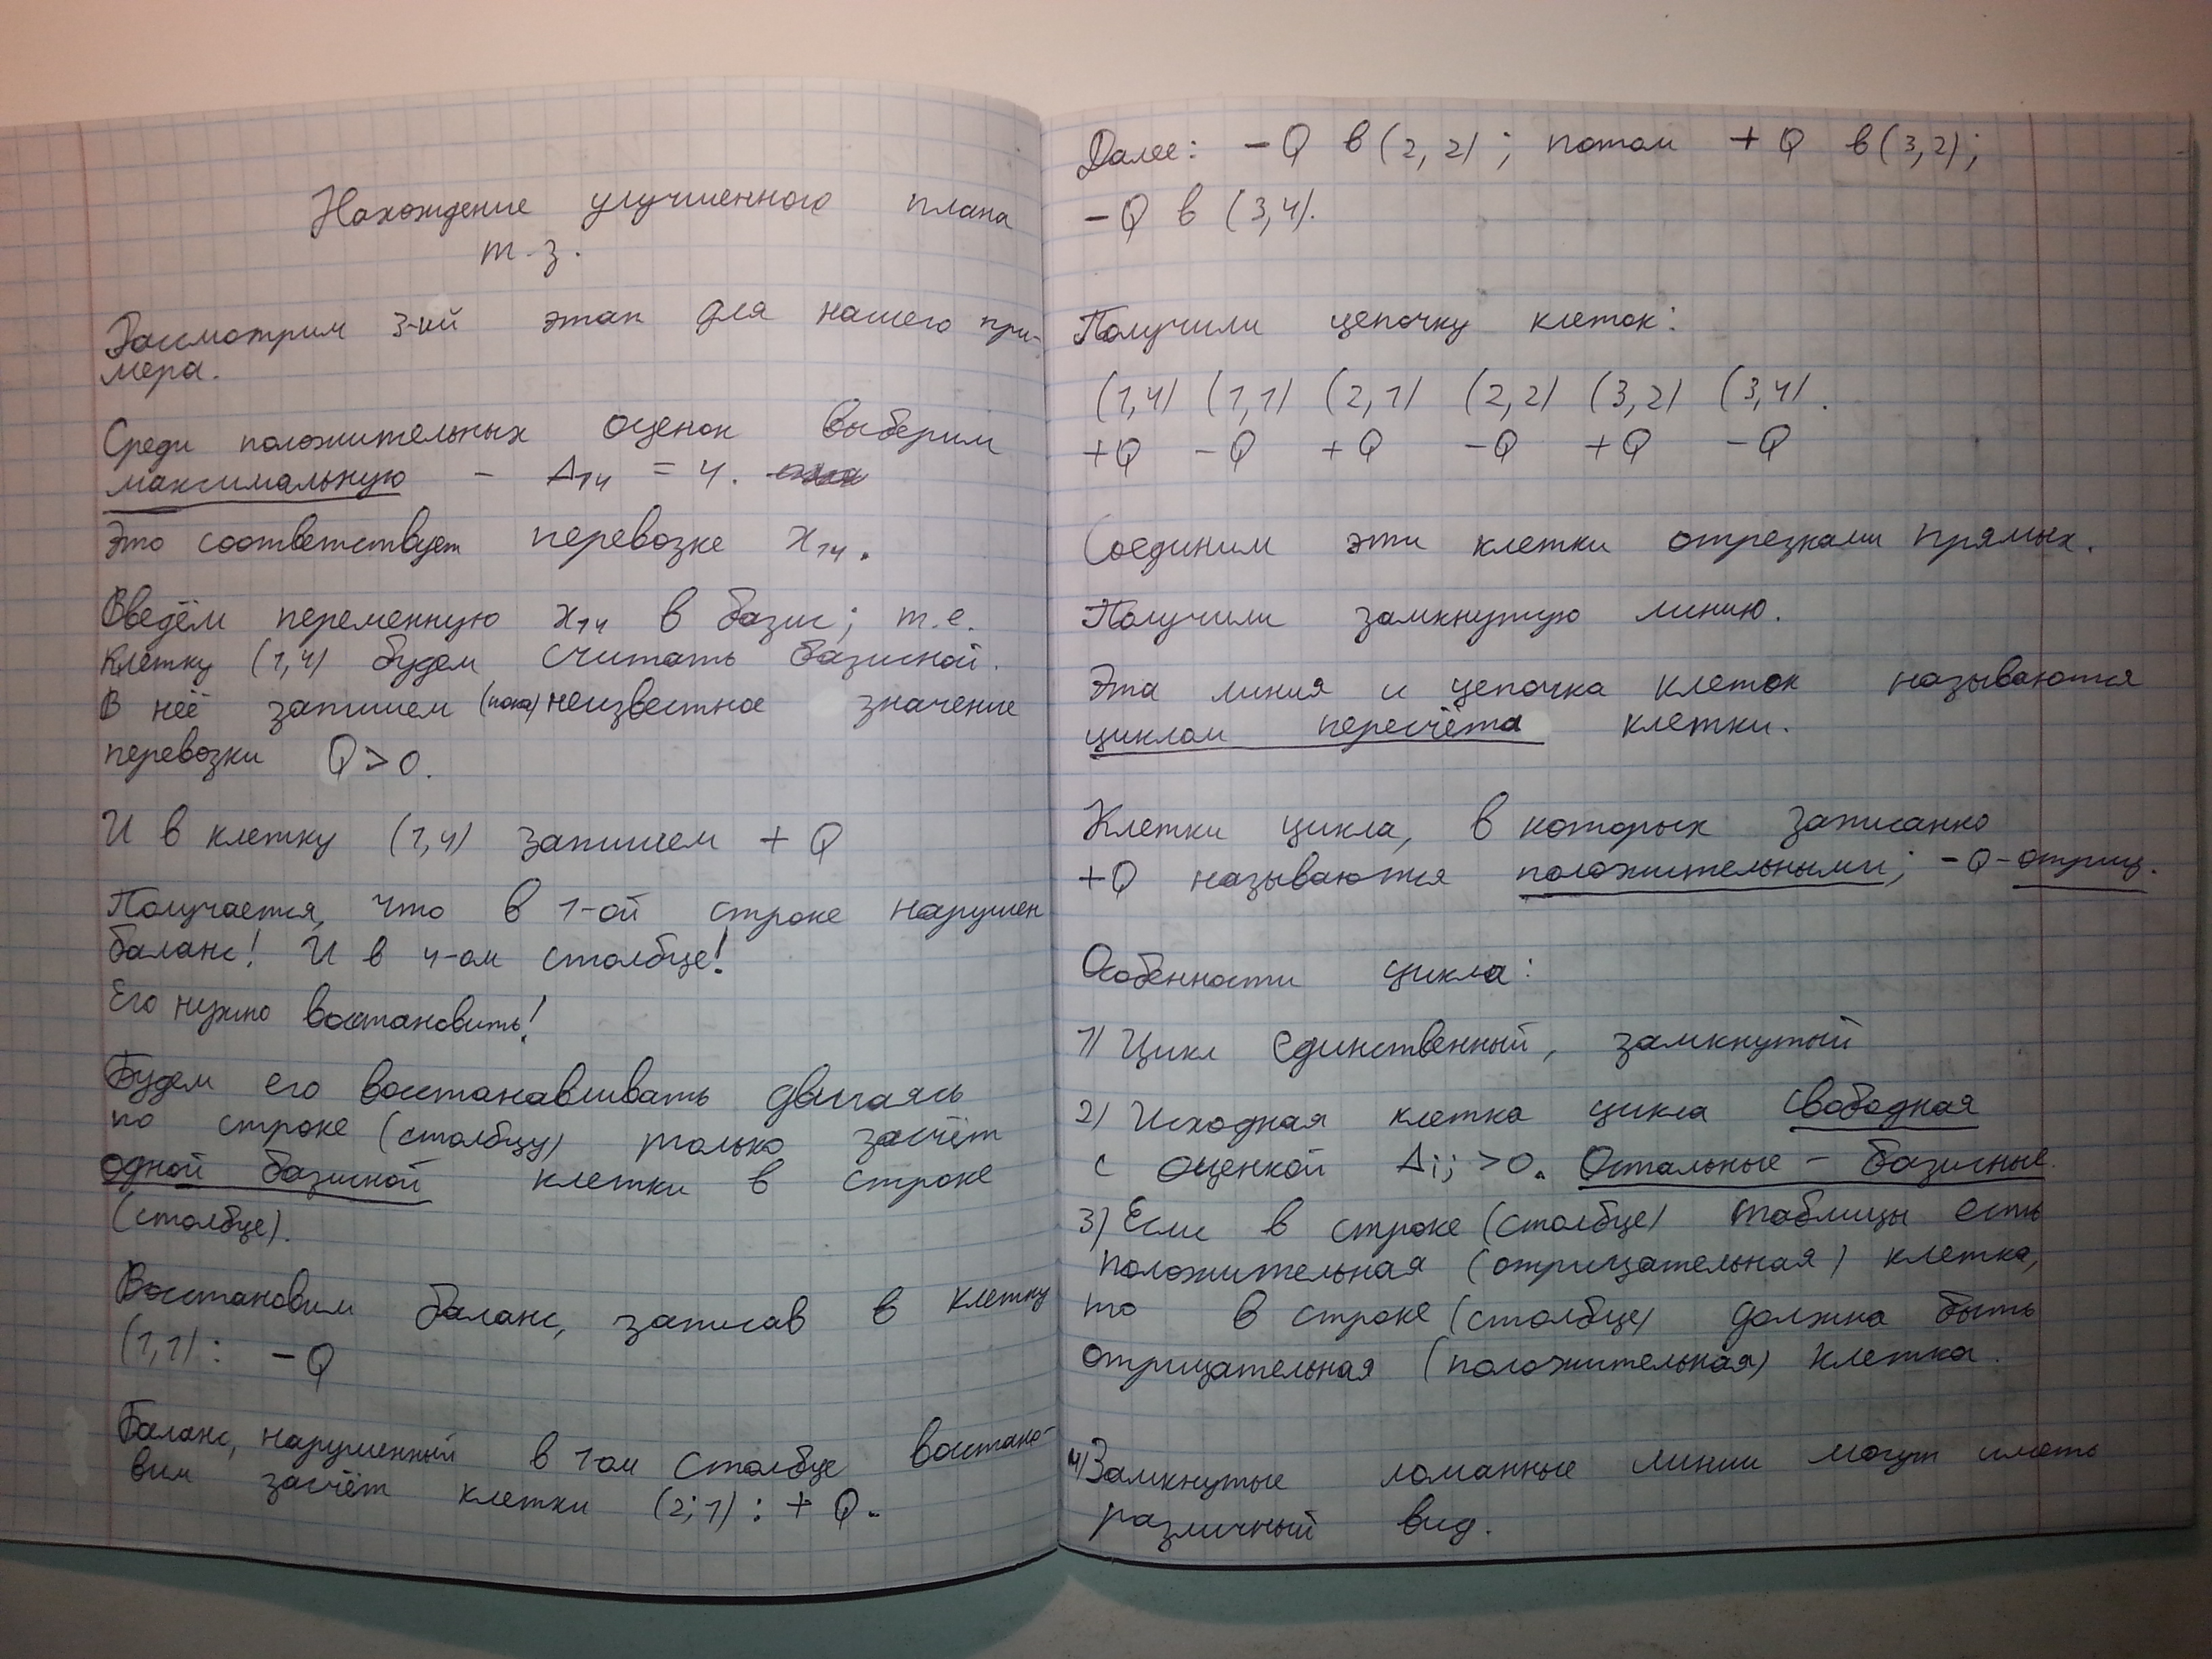 Нахождение улучшенного плана
т-з.
Рассмотрим 3-ий этап для нашего при-
мера.
Среди положительных оценок выберим
максимальную - Δ14 = 4.
Это соответствует перевозке x14.
Введём переменную x14 в базис; т.е.
клетку (1,4) будем считать базисной.
В неё запишем (пока) неизвестное значение
перевозки Q>0.
И в клетку (1,4) запишем +Q
Получается, что в 1-ой строке нарушен
баланс! И в 4-ом столбце!
Его нужно востановить!
Будем его востанавливать двигаясь
по строке (столбцу) только засчёт
одной базисной клетки в строке
(столбце).
Востановим баланс, записав в клетку
(1,1): -Q
Баланс, нарушенный в 1-ом столбце востано-
вим засчёт клетки (2;1): +Q.
Далее: -Q в (2,2); потом +Q в (3,2);
-Q в (3,4).
Получили цепочку клеток:
(1,4) (1,1) (2,1) (2,2) (3,2) (3,4).
+Q -Q +Q -Q +Q -Q
Соединим эти клетки отрезками прямых.
Получили замкнутую линию.
Эта линия и цепочка клеток называются
циклом пересчёта клетки.
Клетки цикла, в которых записанно
+Q называются положительными; -Q-отриц.
Особенности цикла:
1) Цикл единственный, замкнутый
2) Исходная клетка цикла свободная
с оценкой Δij>0. Остальные - базисные.
3) Если в строке (столбце) таблицы есть
положительная (отрицательная) клетка,
то в строке (столбце) должна быть
отрицательная (положительная) клетка.
4) Замкнутые ломанные линии могут иметь
различный вид.